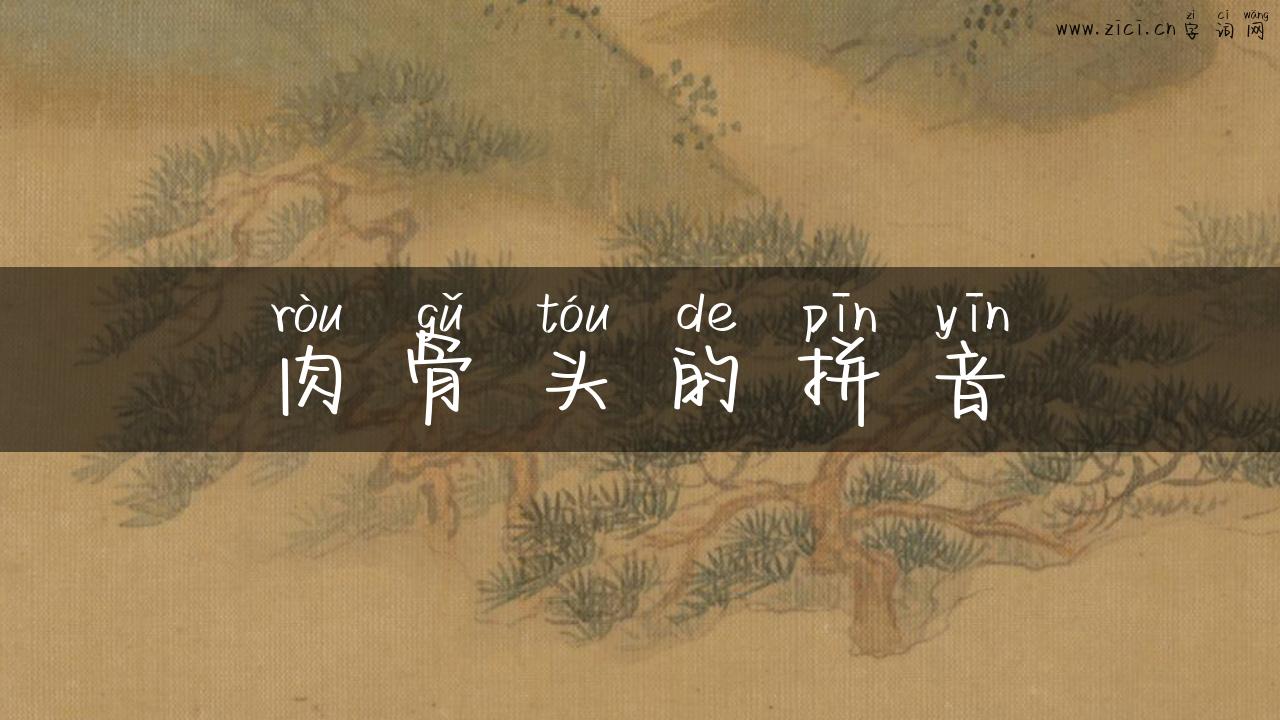 www.zīcī.cn zì cí wǎng
字词网
ròu gǔ tóu de pīn yīn
肉骨头的拼音